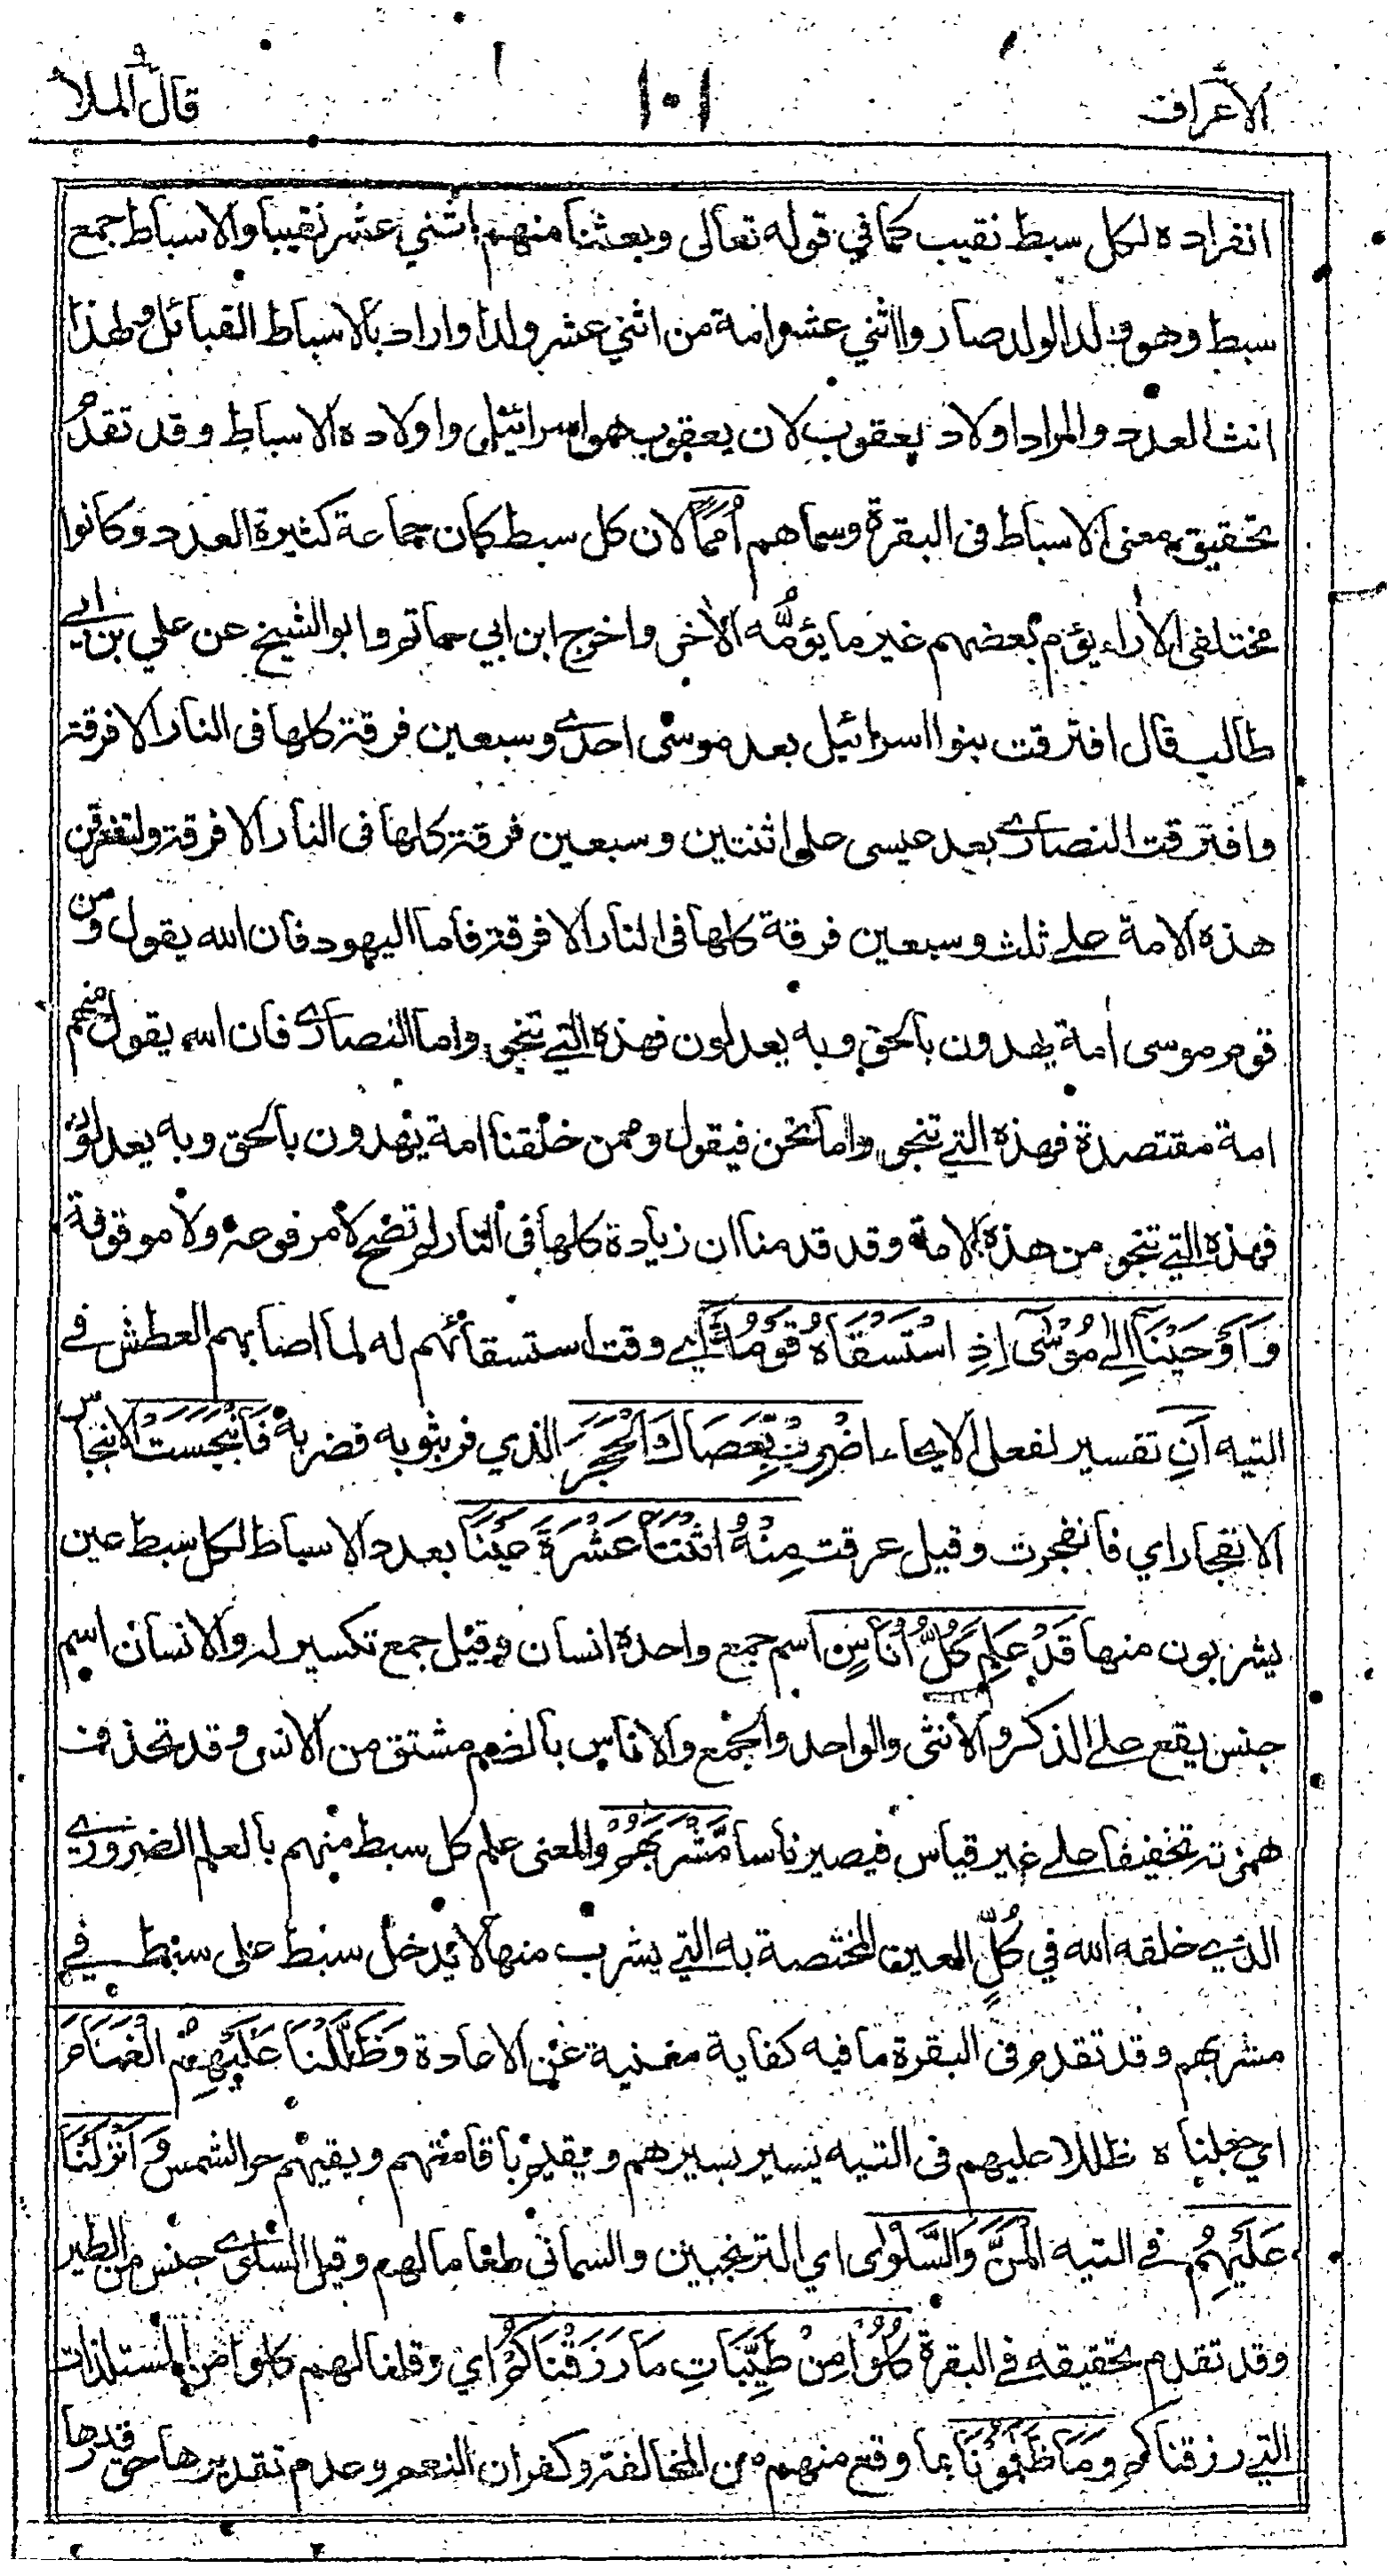 الاعراف ١٠١ قال الملأ
انفراده لكل سبط نقيب كما في قوله تعالى وبعثنا منهم اثني عشر نقيبا والاسباط جمع
سبط وهو ولد الولد صاروا اثني عشر امة من اثني عشر ولدا واراد بالاسباط القبائل ولهذا
انث العدد والمراد اولاد يعقوب لان يعقوب هو اسرائيل واولاده الاسباط وقد تقدم
تحقيق معنى الاسباط في البقرة وسماهم أُمَمًا لان كل سبط كان جماعة كثيرة العدد وكانوا
مختلفي الآراء يؤم بعضهم غير ما يؤمُّه الآخر واخرج ابن ابي حاتم وابو الشيخ عن علي بن ابي
طالب قال افترقت بنوا اسرائيل بعد موسى احدى وسبعين فرقة كلها في النار الا فرقة
وافترقت النصارى بعد عيسى على اثنتين وسبعين فرقة كلها في النار الا فرقة ولتفترقن
هذه الامة على ثلث وسبعين فرقة كلها في النار الا فرقة فاما اليهود فان الله يقول ومن
قوم موسى امة يهدون بالحق وبه يعدلون فهذه التي تنجو واما النصارى فان الله يقول منهم
امة مقتصدة فهذه التي تنجو واما نحن فيقول وممن خلقنا امة يهدون بالحق وبه يعدلون
فهذه التي تنجو من هذه الامة وقد قدمنا ان زيادة كلها في النار لم تصح لا مرفوعة ولا موقوفة
وَاَوْحَيْنَآ اِلٰى مُوْسٰٓى اِذِ اسْتَسْقَاهُ قَوْمُهٗٓ اي وقت استسقائهم له لما اصابهم العطش في
التيه اَنِ تفسير لفعل الايحاء اضْرِبْ بِّعَصَاكَ الْحَجَرَ الذي فر بثوبه فضربه فَانْبَجَسَتْ الانبجاس
الانفجار اي فانفجرت وقيل عرقت مِنْهُ اثْنَتَا عَشْرَةَ عَيْنًا بعدد الاسباط لكل سبط عين
يشربون منها قَدْ عَلِمَ كُلُّ اُنَاسٍ اسم جمع واحده انسان وقيل جمع تكسير له والانسان اسم
جنس يقع على الذكر والأنثى والواحد والجمع والاناس بالضم مشتق من الانس وقد تحذف
همزته تخفيفا على غير قياس فيصير ناسا مَّشْرَبَهُمْ والمعنى علم كل سبط منهم بالعلم الضروري
الذي خلقه الله في كُلٍّ العين المختصة به التي يشرب منها لا يدخل سبط على سبط في
مشربهم وقد تقدم في البقرة ما فيه كفاية مغنية عن الاعادة وَظَلَّلْنَا عَلَيْهِمُ الْغَمَامَ
اي جعلناه ظللا عليهم في التيه يسير بسيرهم ويقيم باقامتهم ويقيهم حر الشمس وَاَنْزَلْنَا
عَلَيْهِمُ في التيه الْمَنَّ وَالسَّلْوٰى اي الترنجبين والسماني طعاما لهم وقيل السلوى جنس من الطير
وقد تقدم تحقيقه في البقرة كُلُوْا مِنْ طَيِّبَاتِ مَا رَزَقْنَاكُمْ اي وقلنا لهم كلوا من المستلذات
التي رزقناكم وَمَا ظَلَمُوْنَا بما وقع منهم من المخالفة وكفران النعم وعدم تقديرها حق قدرها